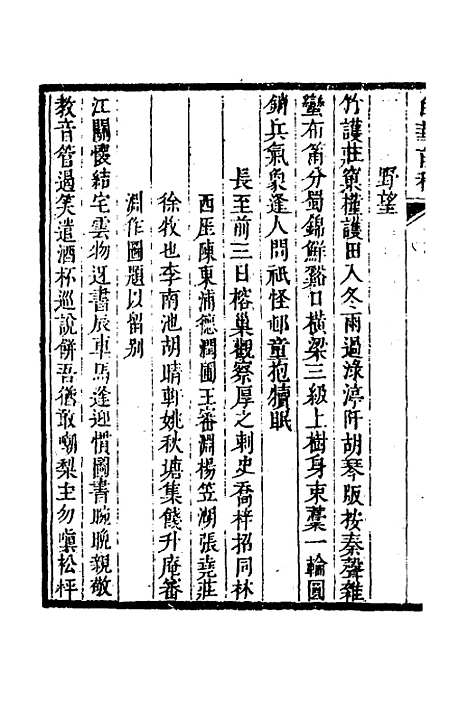 野望
竹護莊窠權護田入冬雨過淥渟阡胡琴版按秦聲雜
蠻布箭分蜀錦鮮谿口橫梁三級上樹身束藁一輪圓
銷兵氣象逢人問祇怪邨童抱犢眠
長至前三日榕巢觀察厚之刺史喬梓招同林
西厓陳東浦德潤圃王審淵楊笠湖張堯莊
徐牧也李南池胡晴軒姚秋塘集餞升庵審
淵作圖題以留别
江關懷結宅雲物迓書辰車馬逢迎慣圖書腕晚親敬
教音管過笑遣酒杯巡說餅吾猶敢嘲梨主勿嗔松枰